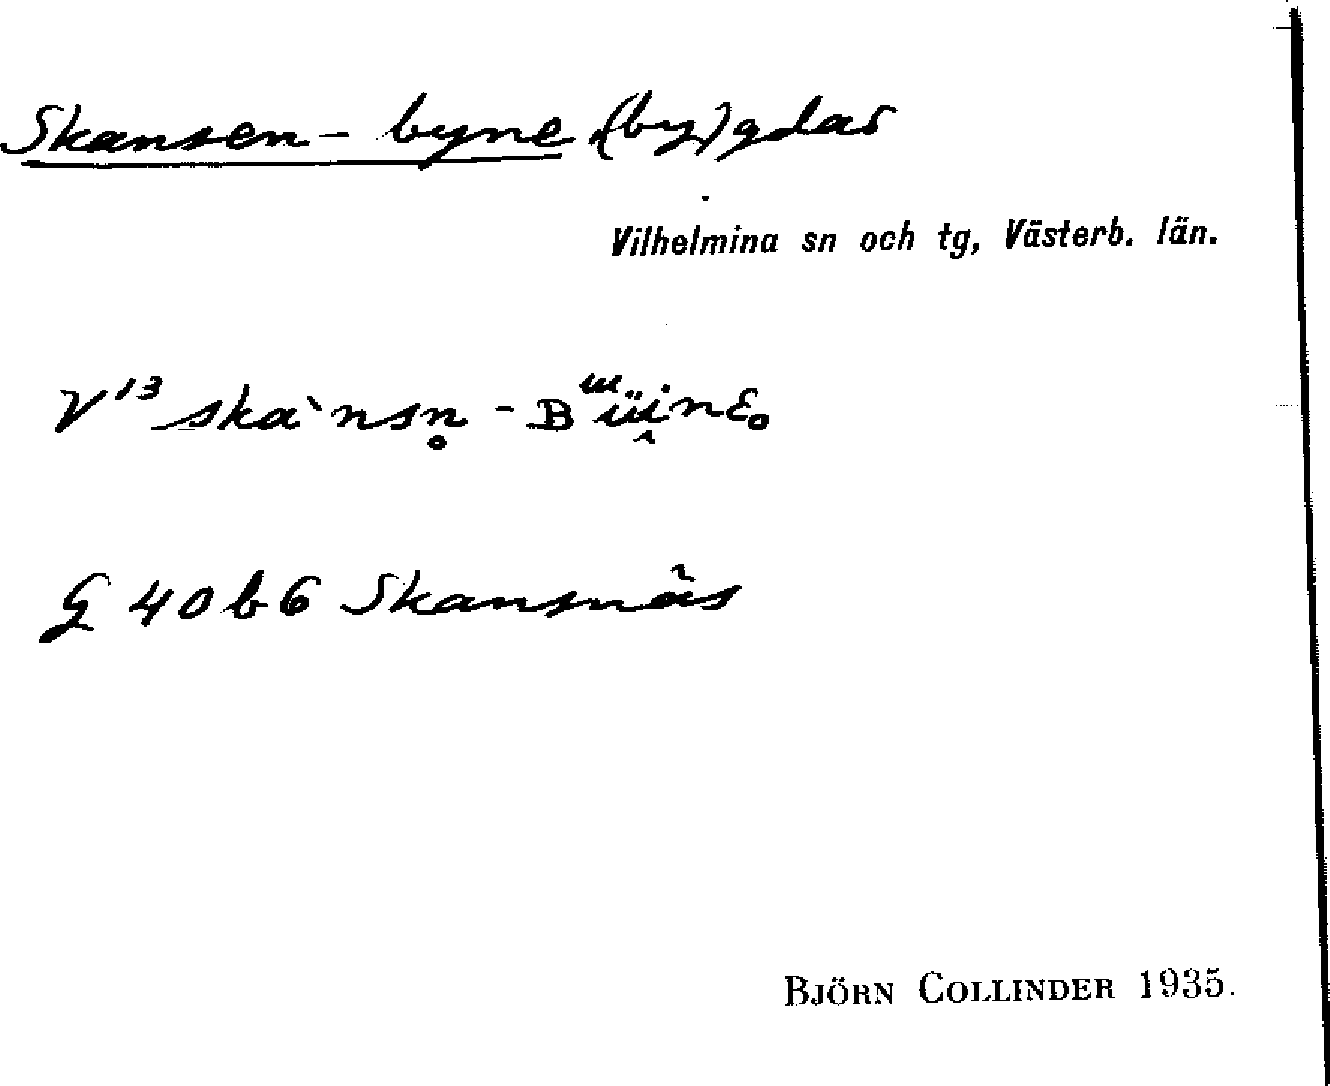 Skansen-byne (by)gdar
Vilhelmina sn och tg, Västerb. län.
V¹³ skaˋnsn̥ - Bᵚüi̭nɛ̥
G 40 b 6 Skansnäs
BJÖRN COLLINDER 1935.